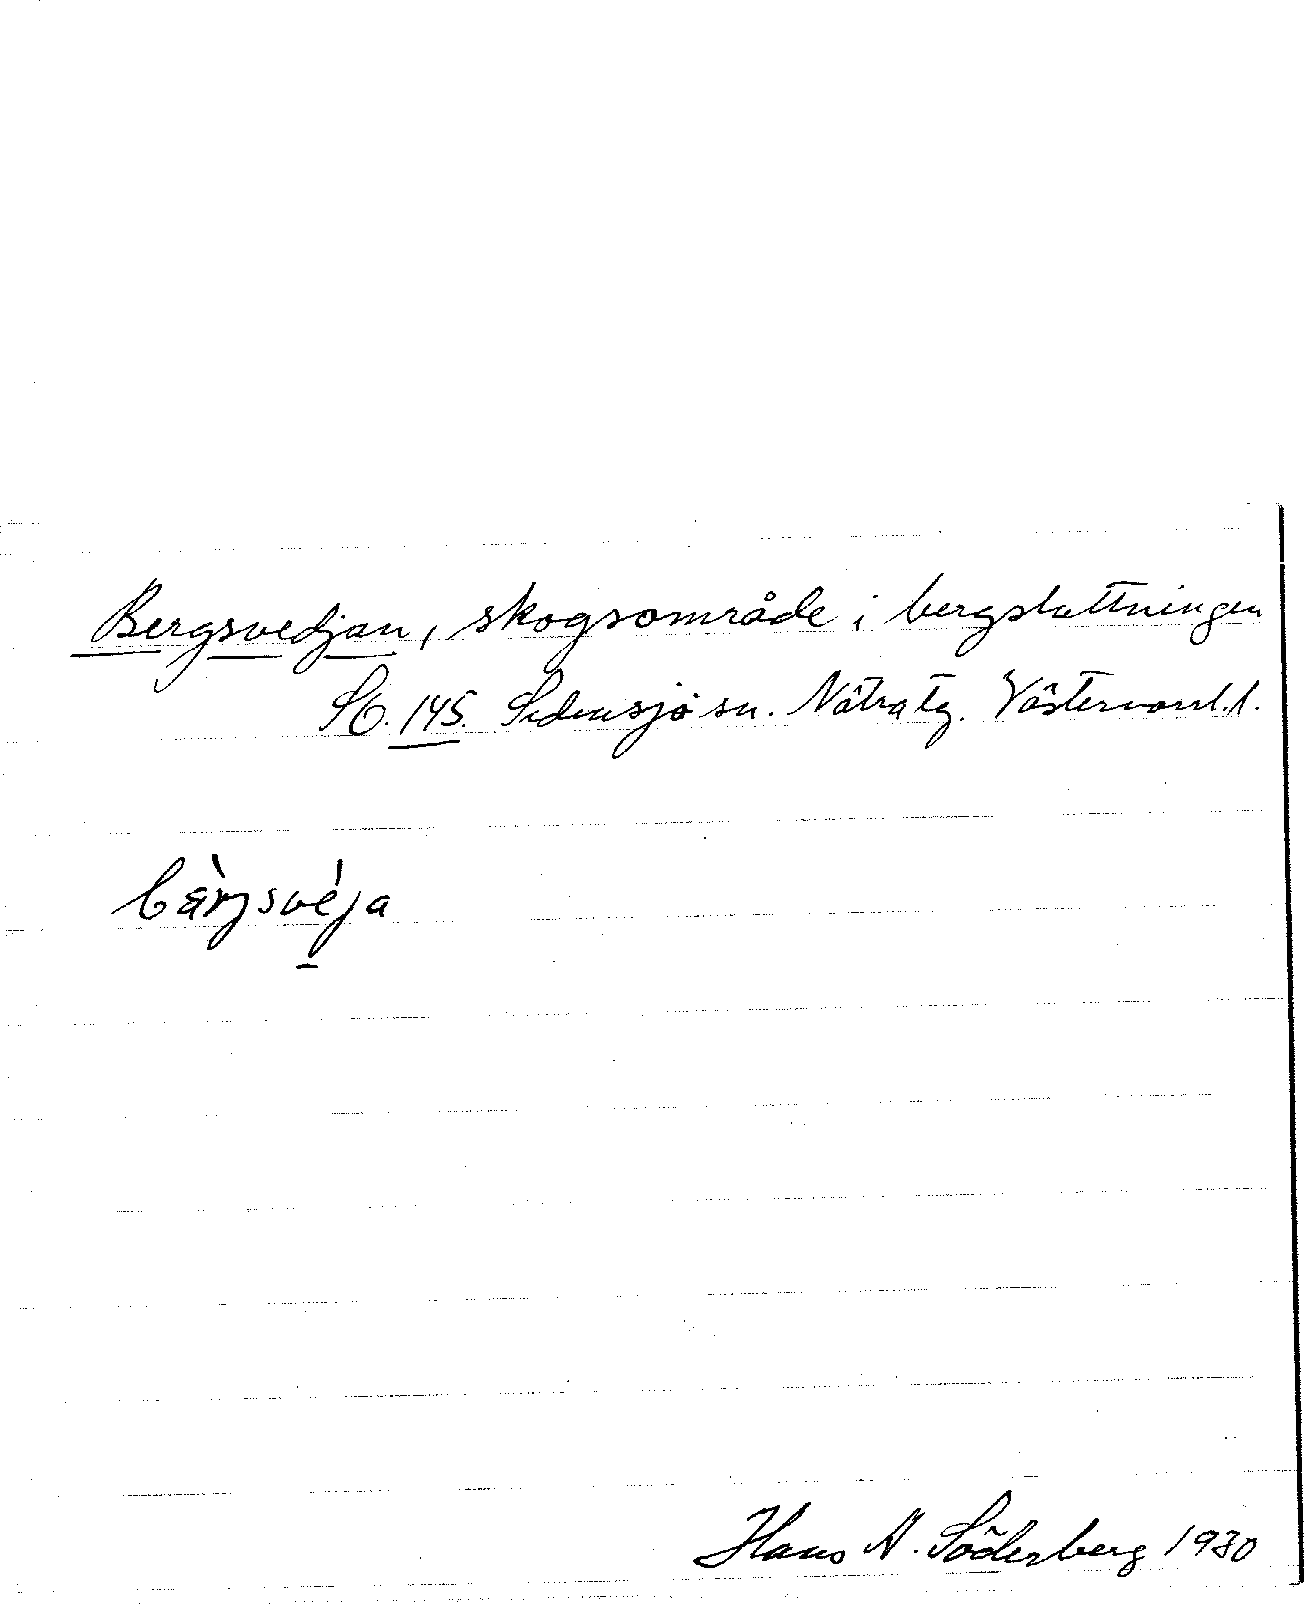 Bergsvedjan, skogsområde i bergsluttningen
SO. 145. Sidensjö sn. Nätra tg. Västernorrl. l.
bä̀rjsvèja
Hans A. Söderberg 1930